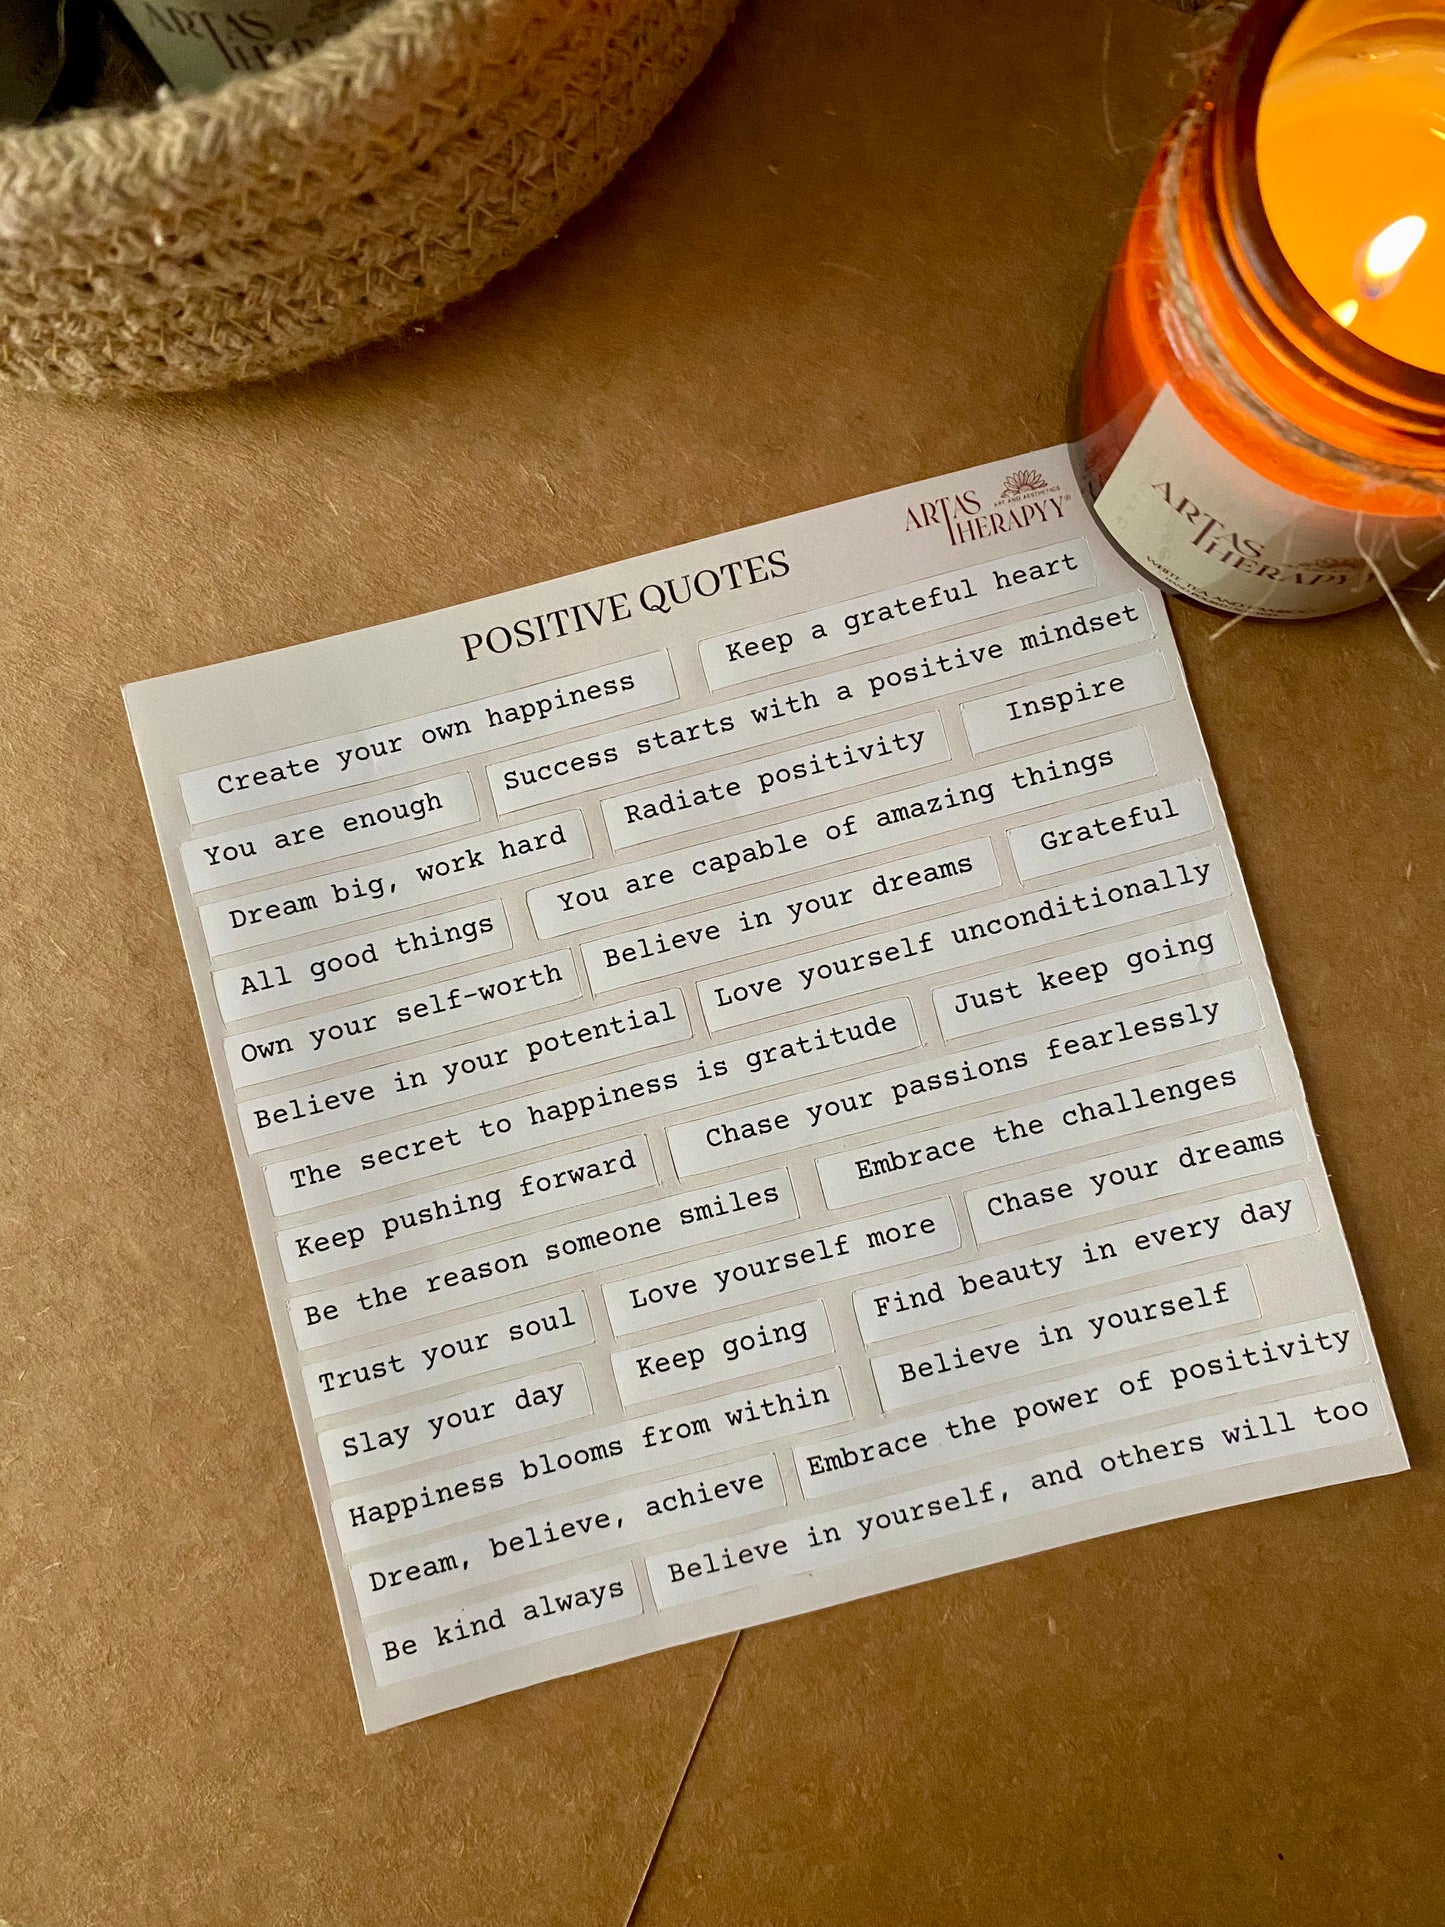 ARTAS
THERAPYY®
ART AND AESTHETICS
POSITIVE QUOTES
Create your own happiness
Keep a grateful heart
You are enough
Success starts with a positive mindset
Dream big, work hard
Radiate positivity
Inspire
All good things
You are capable of amazing things
Own your self-worth
Believe in your dreams
Grateful
Believe in your potential
Love yourself unconditionally
The secret to happiness is gratitude
Just keep going
Keep pushing forward
Chase your passions fearlessly
Be the reason someone smiles
Embrace the challenges
Trust your soul
Love yourself more
Chase your dreams
Slay your day
Keep going
Find beauty in every day
Happiness blooms from within
Believe in yourself
Dream, believe, achieve
Embrace the power of positivity
Be kind always
Believe in yourself, and others will too
ARTAS
THERAPY
WHITE TEA AND
ARTAS